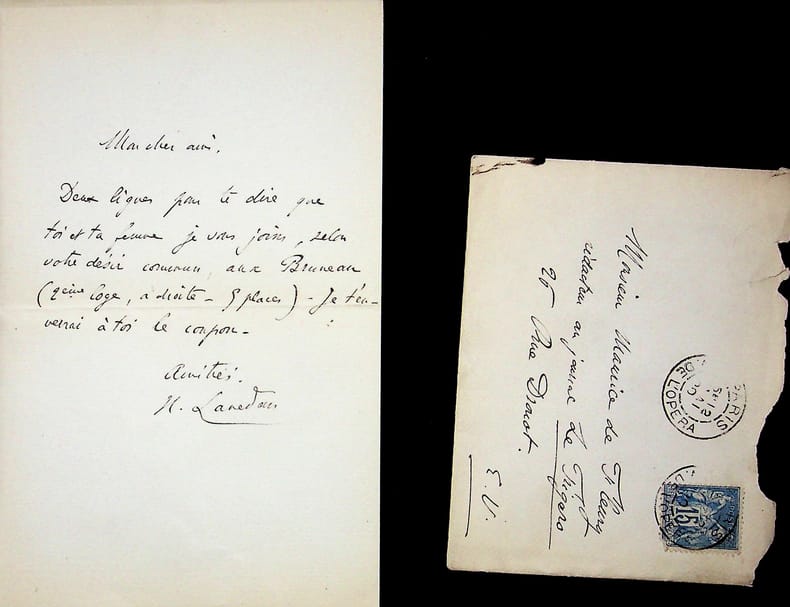 Mon cher ami,
Deux lignes pour te dire que
toi et ta femme je vous joins, selon
votre désir commun, aux Bruneau
(2ème loge, à droite - 5 places) - Je t'en-
verrai à toi le coupon -
Amitiés.
H. Lavedan
Monsieur Maurice de Fleury
rédacteur au journal Le Figaro
26 Rue Drouot.
E. V.
PARIS
DE L'OPERA
15